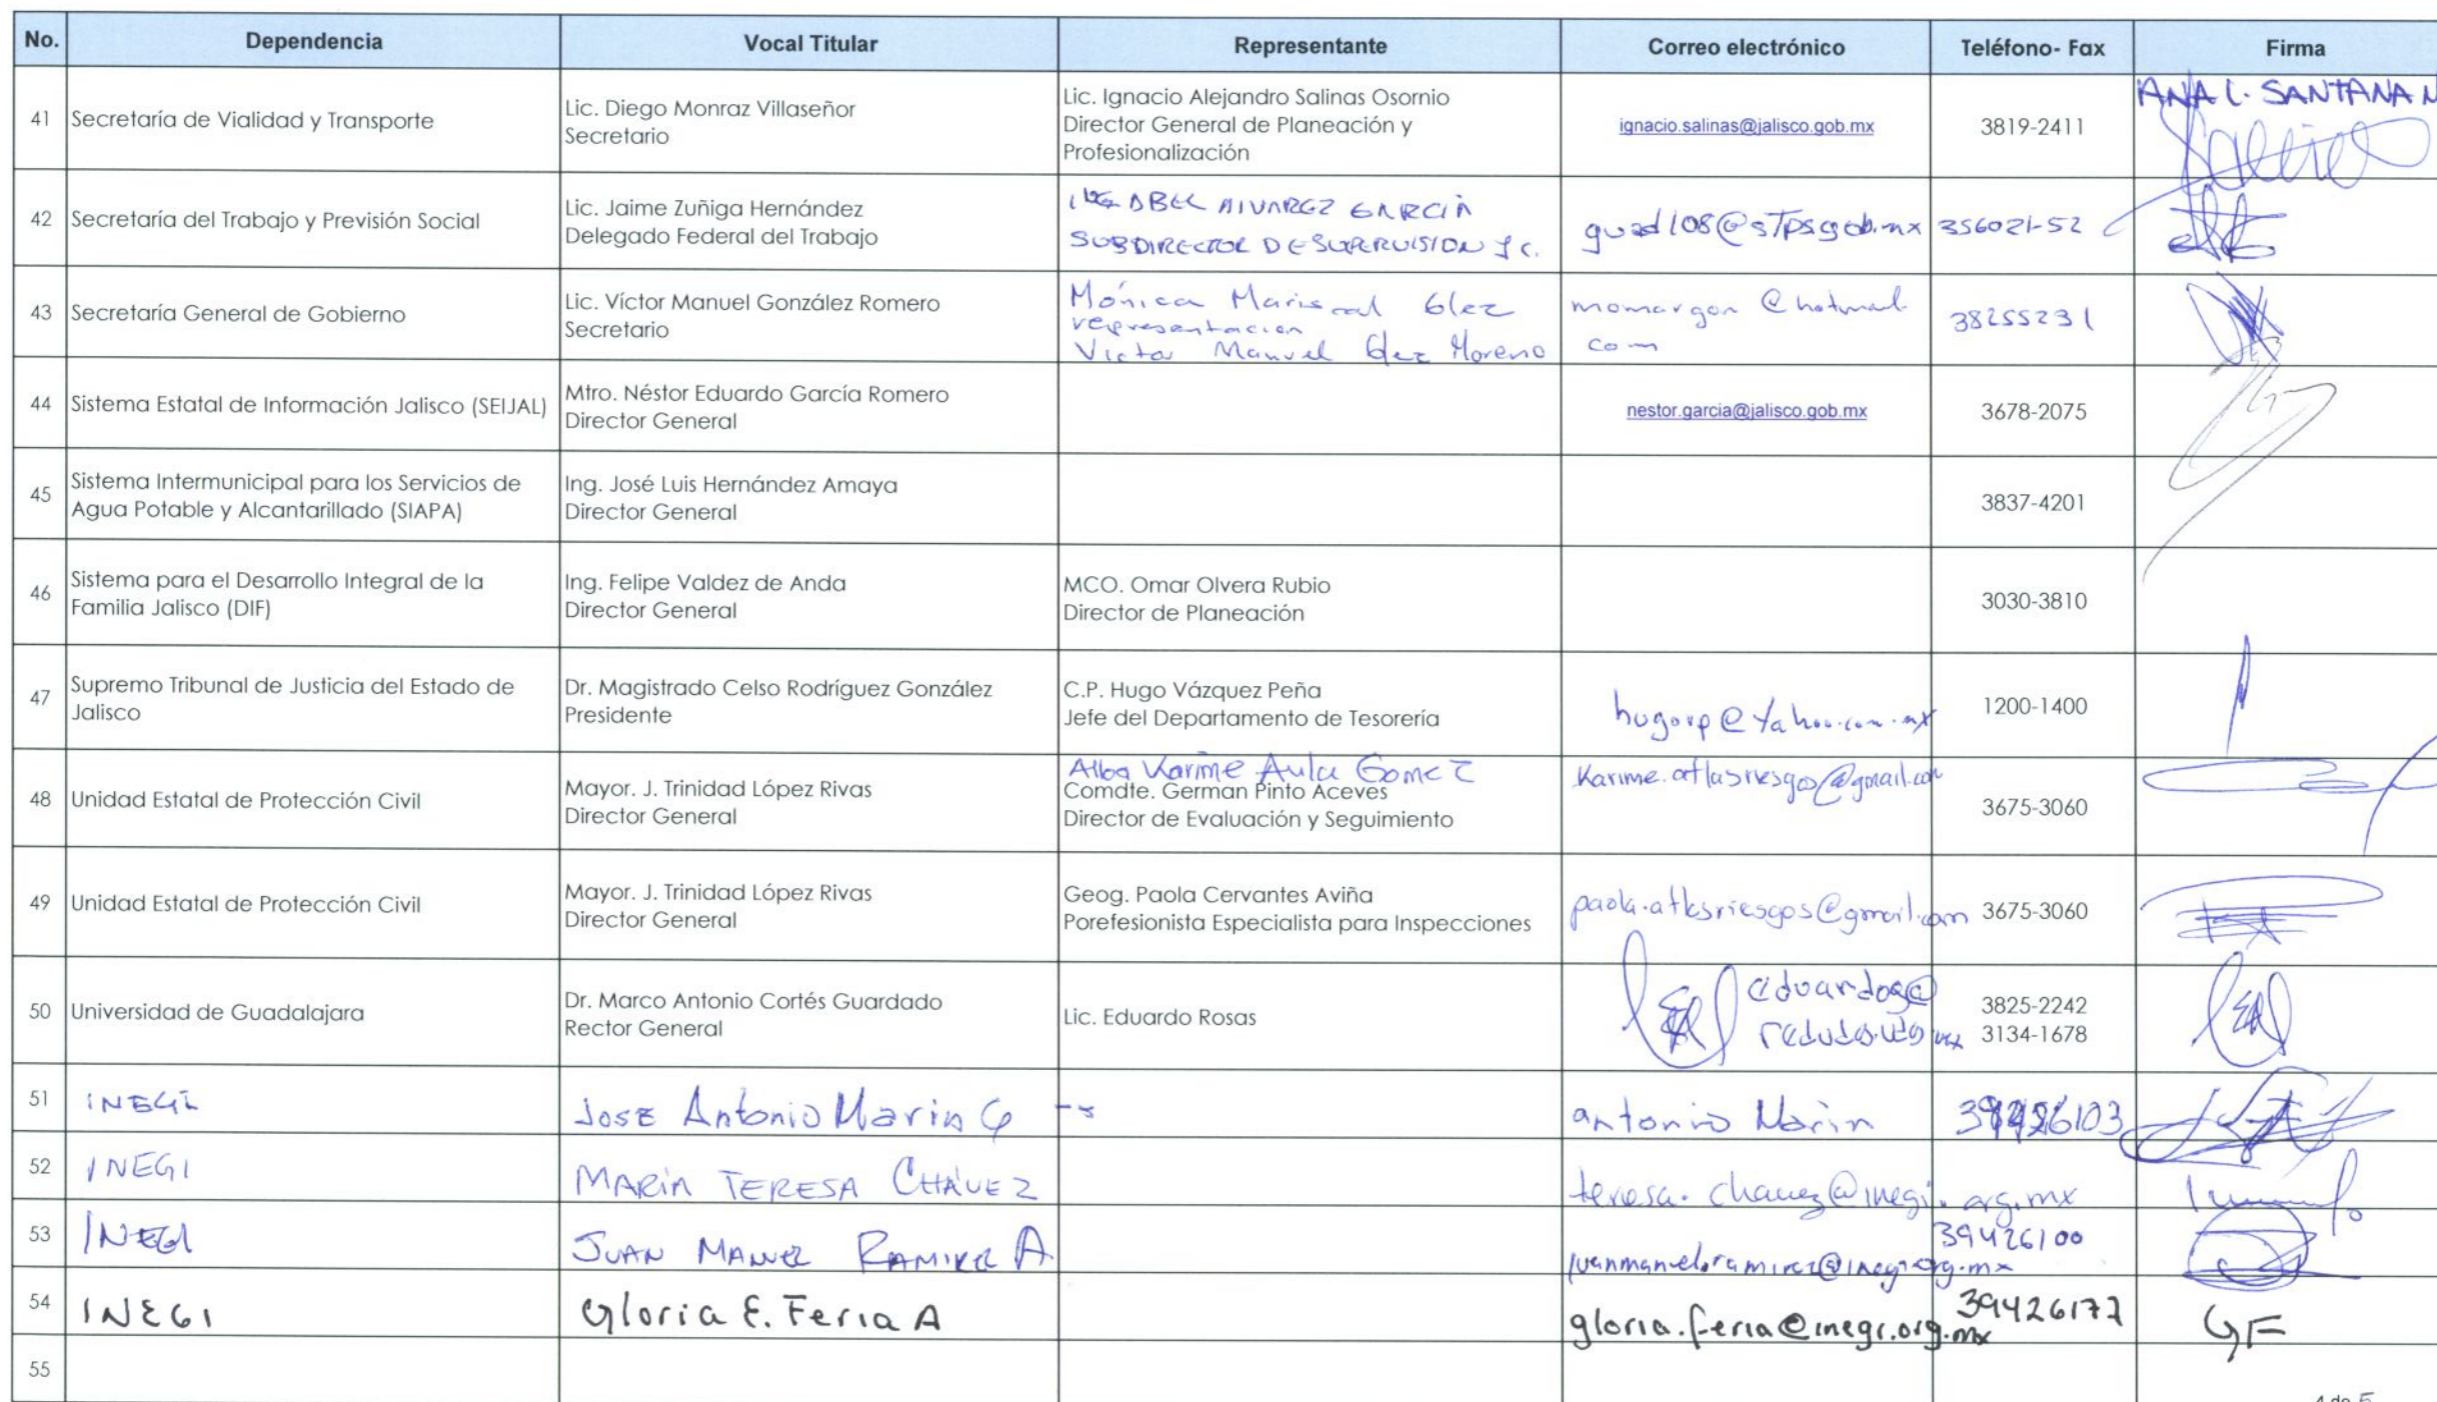 No. Dependencia Vocal Titular Representante Correo electrónico Teléfono- Fax Firma
ANA L. SANTANA
41 Secretaría de Vialidad y Transporte
Lic. Diego Monraz Villaseñor
Secretario
Lic. Ignacio Alejandro Salinas Osornio
Director General de Planeación y
Profesionalización
ignacio.salinas@jalisco.gob.mx
3819-2411
42 Secretaría del Trabajo y Previsión Social
Lic. Jaime Zuñiga Hernández
Delegado Federal del Trabajo
ING ABEL ALVAREZ GARCÍA
SUBDIRECTOR DE SUPERVISION
guad108@stps.gob.mx
356021-52
43 Secretaría General de Gobierno
Lic. Víctor Manuel González Romero
Secretario
Mónica Mariscal Glez
representacion
Victor Manuel Glez Moreno
momargon @hotmail
com
38255231
44 Sistema Estatal de Información Jalisco (SEIJAL)
Mtro. Néstor Eduardo García Romero
Director General
nestor.garcia@jalisco.gob.mx
3678-2075
45 Sistema Intermunicipal para los Servicios de
Agua Potable y Alcantarillado (SIAPA)
Ing. José Luis Hernández Amaya
Director General
3837-4201
46 Sistema para el Desarrollo Integral de la
Familia Jalisco (DIF)
Ing. Felipe Valdez de Anda
Director General
MCO. Omar Olvera Rubio
Director de Planeación
3030-3810
47 Supremo Tribunal de Justicia del Estado de
Jalisco
Dr. Magistrado Celso Rodríguez González
Presidente
C.P. Hugo Vázquez Peña
Jefe del Departamento de Tesorería
hugovp@yahoo.com.mx
1200-1400
48 Unidad Estatal de Protección Civil
Mayor. J. Trinidad López Rivas
Director General
Alba Karime Avila Gomez
Comdte. German Pinto Aceves
Director de Evaluación y Seguimiento
Karime.atlasriesgos@gmail.com
3675-3060
49 Unidad Estatal de Protección Civil
Mayor. J. Trinidad López Rivas
Director General
Geog. Paola Cervantes Aviña
Porefesionista Especialista para Inspecciones
paola.atlasriesgos@gmail.com
3675-3060
50 Universidad de Guadalajara
Dr. Marco Antonio Cortés Guardado
Rector General
Lic. Eduardo Rosas
3825-2242
3134-1678
51 INEGI
José Antonio Marin G
antonio Marin
52 INEGI
MARÍA TERESA CHÁVEZ
teresa.chavez@inegi.org.mx
53 INEGI
JUAN MANUEL RAMIREZ A
juanmanuel.ramirez@inegi.org.mx
39426100
54 INEGI
Gloria E. Feria A
gloria.feria@inegi.org.mx
39426177
GF
55
4 de 5